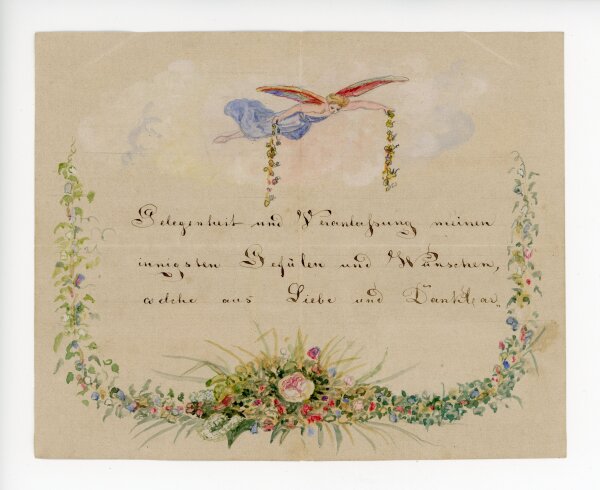 Gelegenheit und Veranlaßung meinen
innigsten Gefülen und Wünschen,
welche aus Liebe und Dankbar„